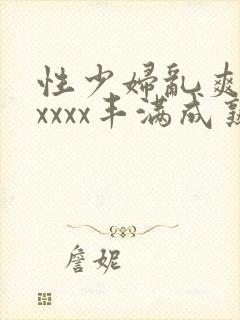 性少婦亂爽
xxxx丰满成熟
詹妮